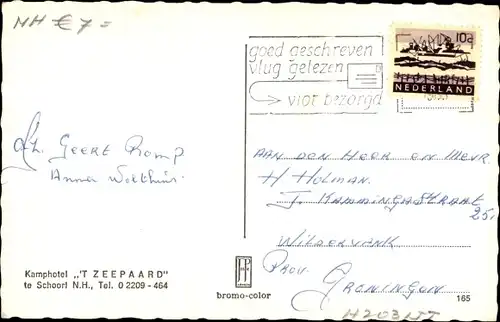 NH € 7=
goed geschreven
vlug gelezen
vlot bezorgd
10c
NEDERLAND
Geert Romp
AAN DEN HEER EN MEVR
H Holman.
J. KAMMINGASTRAAT
25,
WILDERVANK
PROV. GRONINGEN
Kamphotel „'T ZEEPAARD"
te Schoorl N.H., Tel. 0 2209 - 464
bromo-color
165